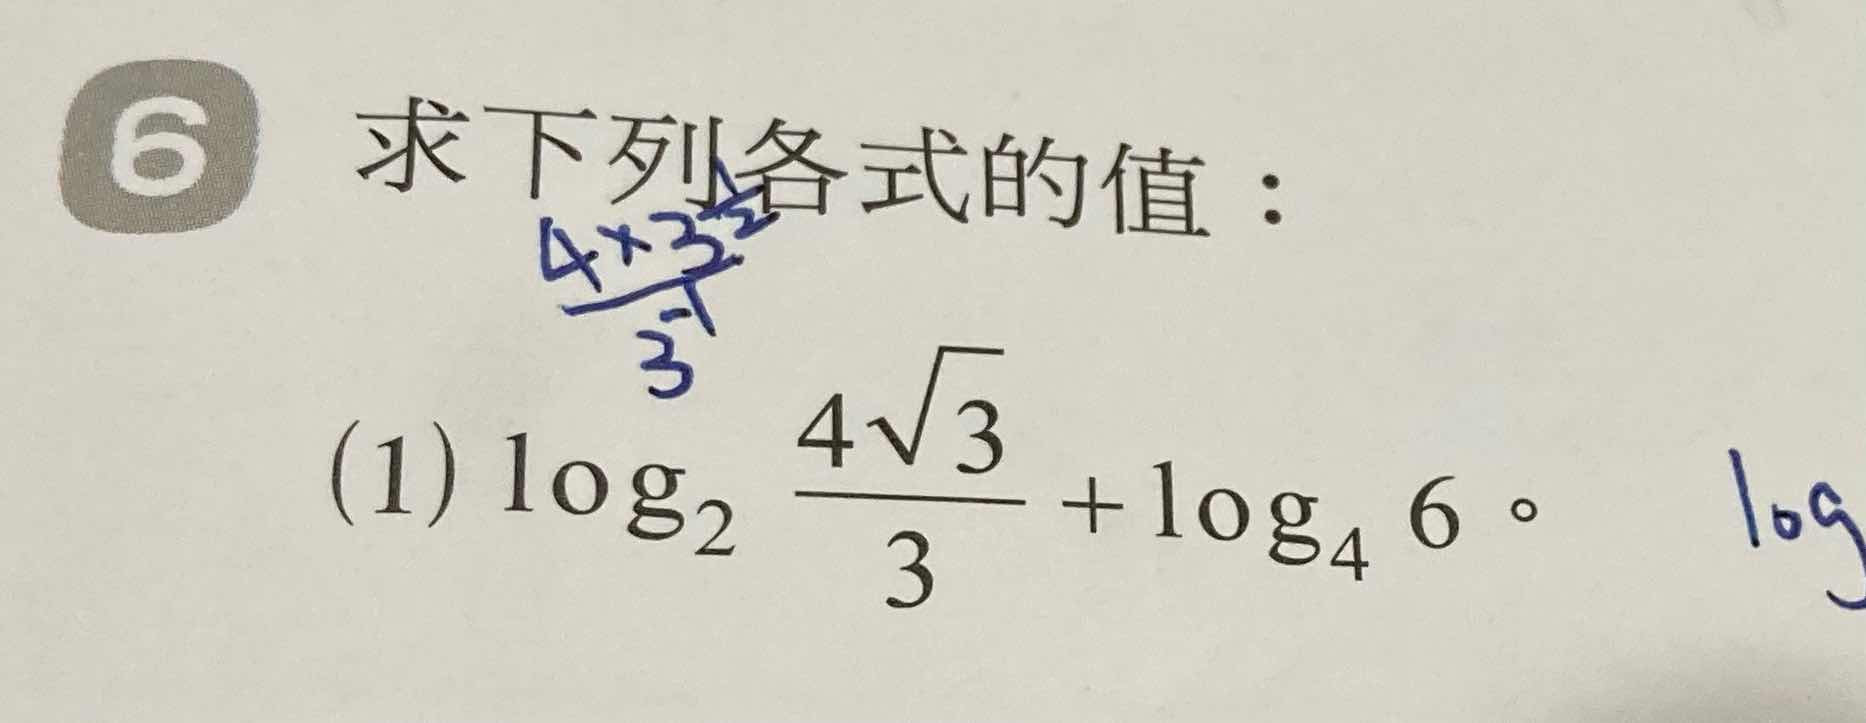 6 求下列各式的值：
4×3^(1/2)
3^-1
(1) log₂ 4√3/3 + log₄ 6。 log